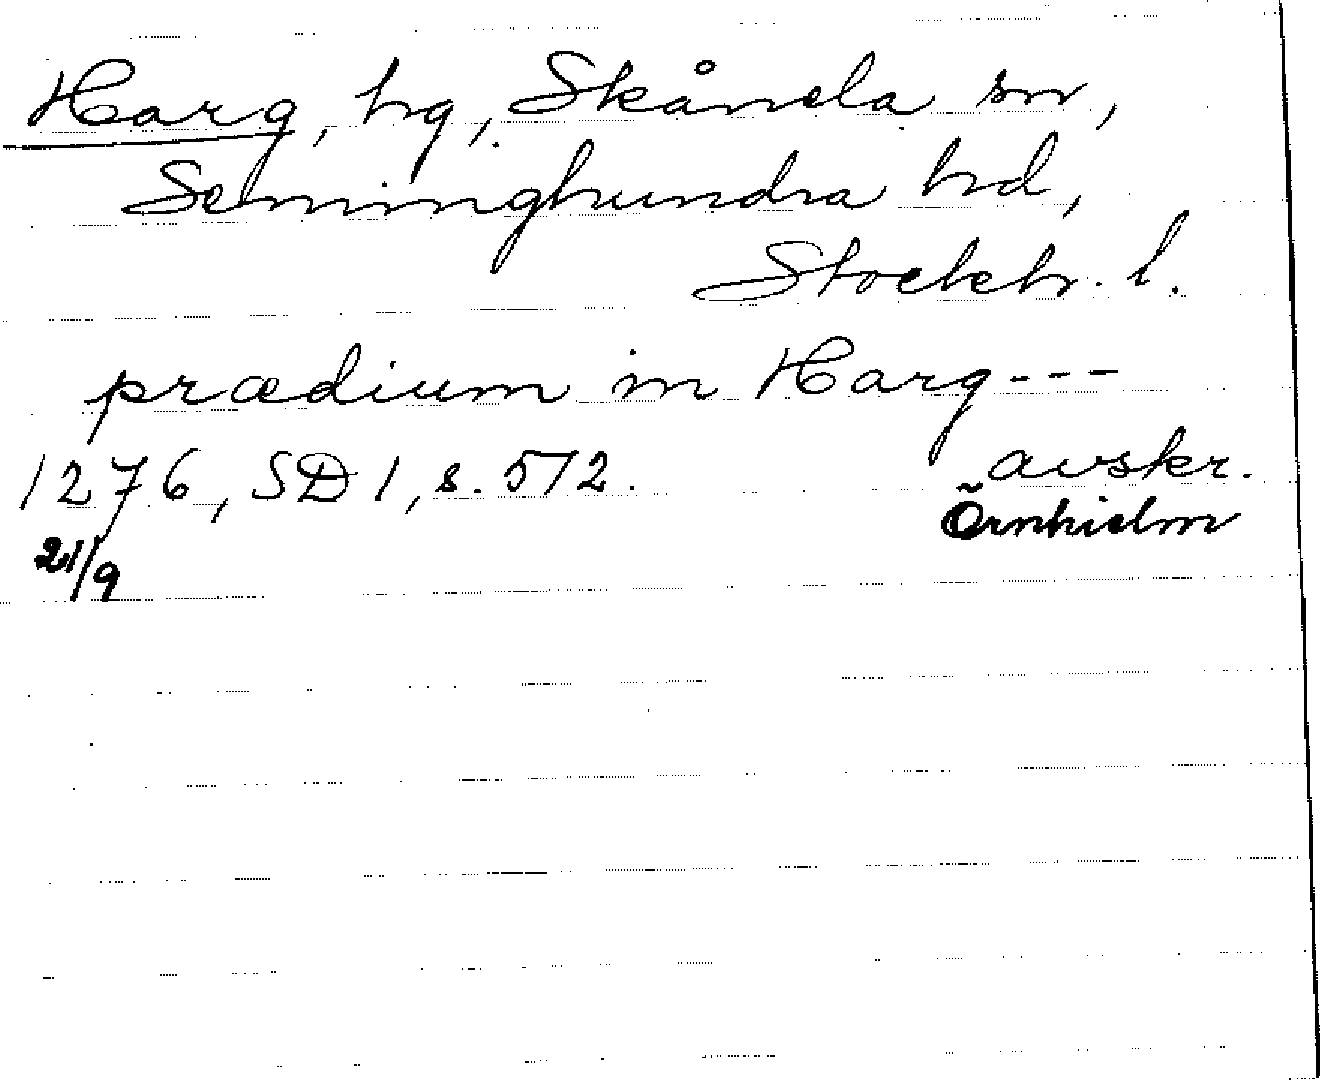 Harg, hg, Skånela sn,
Seminghundra hd,
Stockh. l.
prædium in Harg---
1276, SD 1, s. 512. avskr.
21/9 Örnhielm